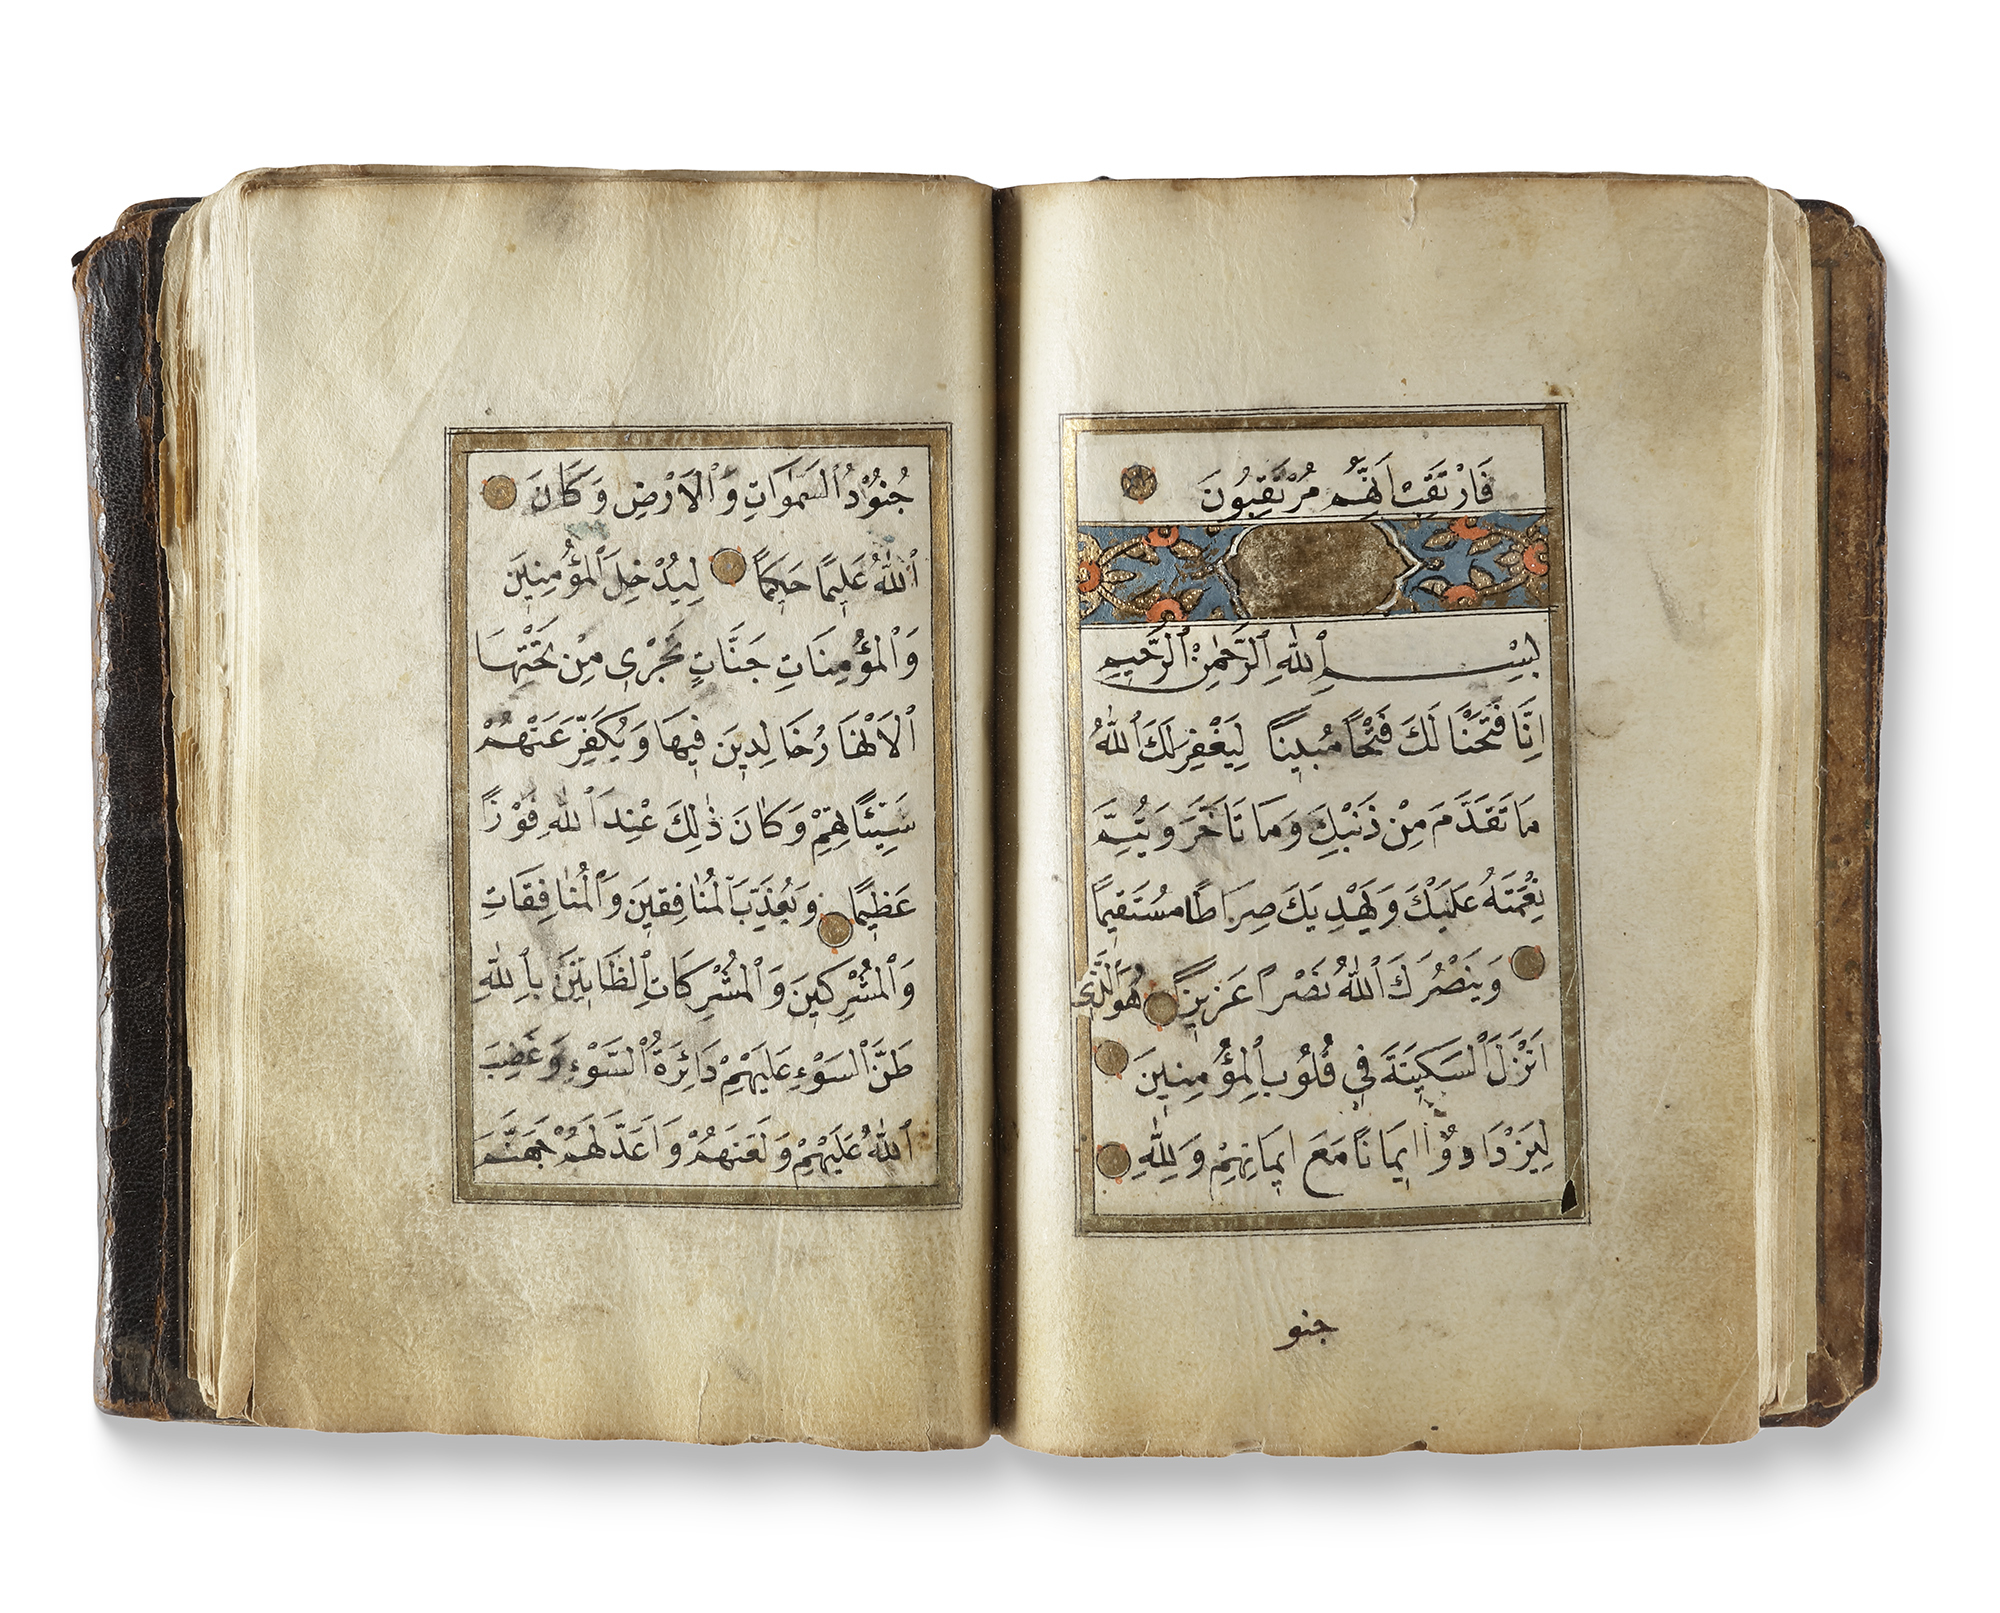 فَارْتَقِبْ اِنَّهُمْ مُرْتَقِبُونَ
بِسْمِ ٱللّٰهِ ٱلرَّحْمٰنِ ٱلرَّحِيمِ
اِنَّا فَتَحْنَا لَكَ فَتْحًا مُبِينًا لِيَغْفِرَ لَكَ ٱللّٰهُ
مَا تَقَدَّمَ مِنْ ذَنْبِكَ وَمَا تَاَخَّرَ وَيُتِمَّ
نِعْمَتَهُ عَلَيْكَ وَيَهْدِيَكَ صِرَاطًا مُسْتَقِيمًا
وَيَنْصُرَكَ ٱللّٰهُ نَصْرًا عَزِيزًا هُوَ ٱلَّذِى
اَنْزَلَ ٱلسَّكِينَةَ فِي قُلُوبِ ٱلْمُؤْمِنِينَ
لِيَزْدَادُوٓا اِيمَانًا مَعَ اِيمَانِهِمْ وَلِلّٰهِ
جنو
جُنُوْدُ ٱلسَّمٰوَاتِ وَٱلْاَرْضِ وَكَانَ
ٱللّٰهُ عَلِيمًا حَكِيمًا لِيُدْخِلَ ٱلْمُؤْمِنِينَ
وَٱلْمُؤْمِنَاتِ جَنَّاتٍ تَجْرِى مِنْ تَحْتِهَا
ٱلْاَنْهَارُ خَالِدِينَ فِيهَا وَيُكَفِّرَ عَنْهُمْ
سَيِّئَاتِهِمْ وَكَانَ ذٰلِكَ عِنْدَ ٱللّٰهِ فَوْزًا
عَظِيمًا وَيُعَذِّبَ ٱلْمُنَافِقِينَ وَٱلْمُنَافِقَاتِ
وَٱلْمُشْرِكِينَ وَٱلْمُشْرِكَاتِ ٱلظَّانِّينَ بِٱللّٰهِ
ظَنَّ ٱلسَّوْءِ عَلَيْهِمْ دَائِرَةُ ٱلسَّوْءِ وَغَضِبَ
ٱللّٰهُ عَلَيْهِمْ وَلَعَنَهُمْ وَاَعَدَّ لَهُمْ جَهَنَّمَ